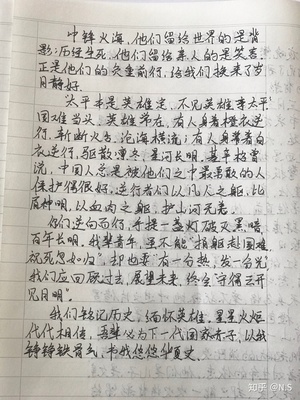 冲锋火海,他们留给世界的是背
影;历经生死,他们留给亲人的是笑容
正是他们的负重前行,给我们换来了岁
月静好。
太平本是英雄定,不见英雄享太平
国难当头,英雄常在,有人身着橙衣逆
行,斩断火舌,沧海横流;有人身着白
衣逆行,驱散凛冬,星河长明,
流,中国人总是被他们之中最勇敢的人
保护得很好,逆行者们以凡人之躯,比
肩神明,以血肉之躯,护山河无恙。
你们逆向而行,手提一盏灯破灭黑暗,
百年长明,我辈青年,虽不能"捐躯赴国难,
视死忽如归",却也要"有一分热,发一分光"
我们应回顾过去,展望未来,终会"守得云开
见月明"。
我们铭记历史,缅怀英雄,星星火炬
代代相传,吾辈必为下一代国家赤子,以我
铮铮铁骨气,书我悠悠华夏史。
知乎 @N.S